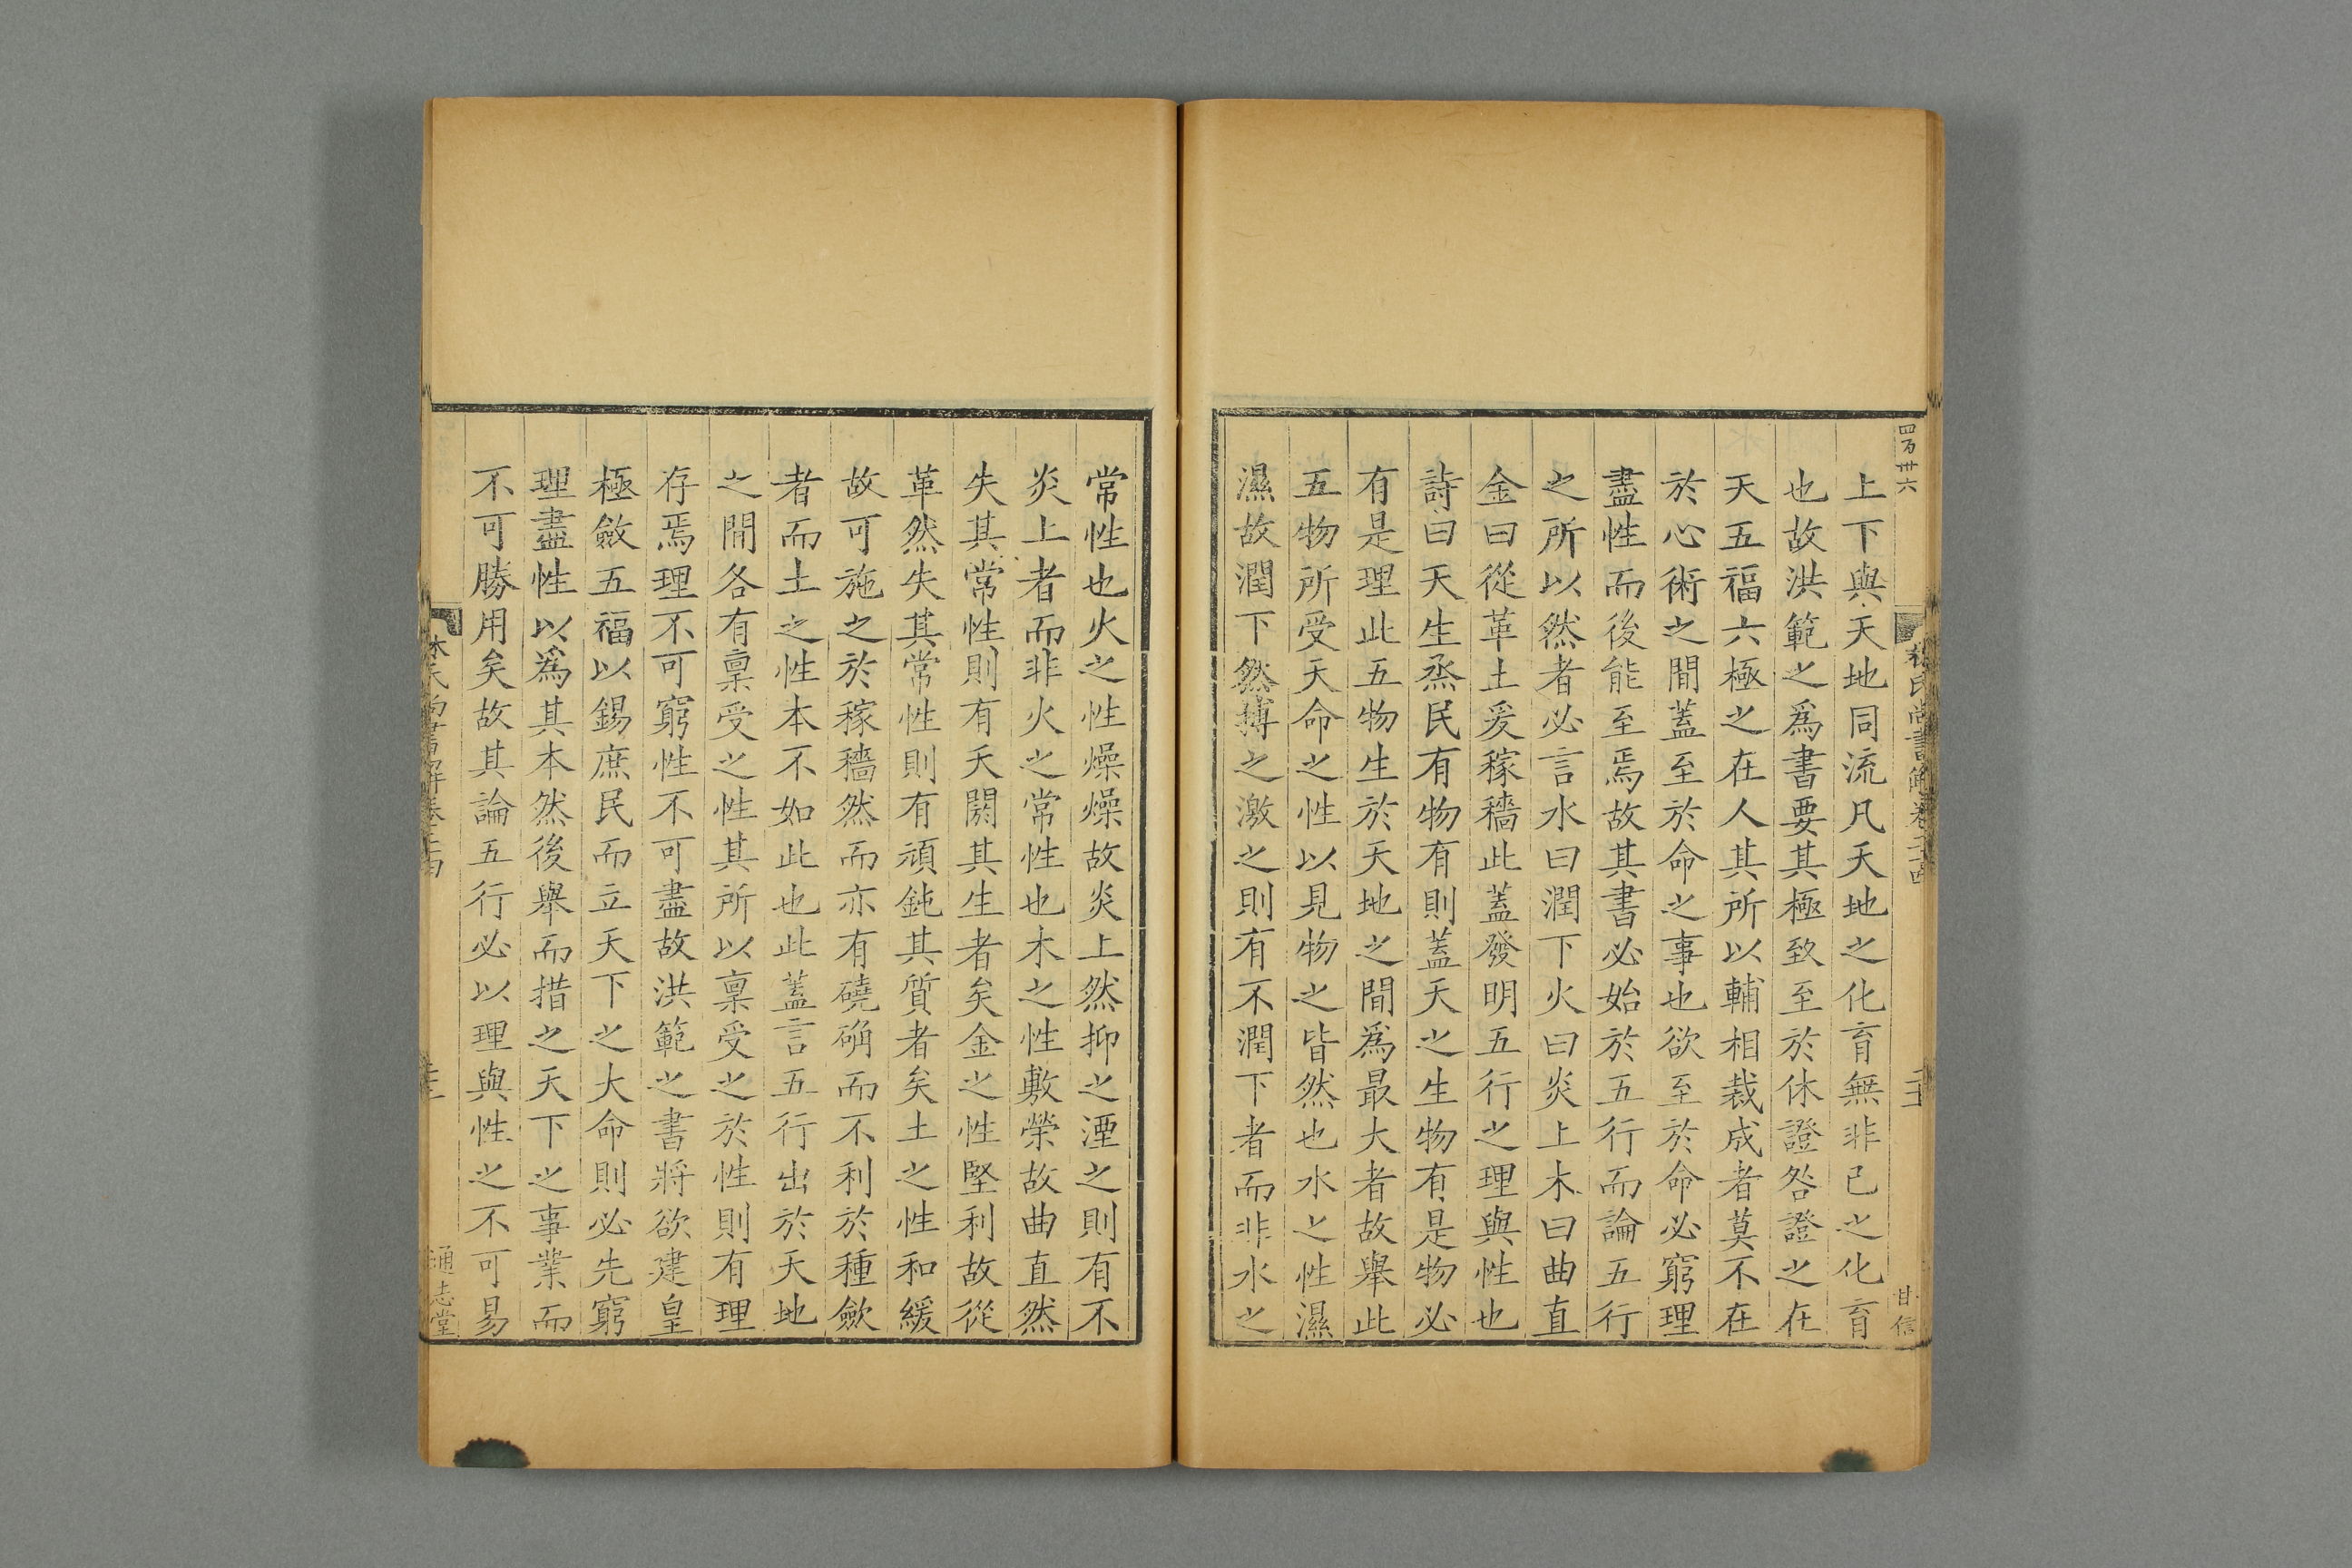 四百卅六
上下與天地同流凡天地之化育無非己之化育
也故洪範之爲書要其極致至於休證咎證之在
天五福六極之在人其所以輔相裁成者莫不在
於心術之間蓋至於命之事也欲至於命必窮理
盡性而後能至焉故其書必始於五行而論五行
之所以然者必言水曰潤下火曰炎上木曰曲直
金曰從革土爰稼穡此蓋發明五行之理與性也
詩曰天生烝民有物有則蓋天之生物有是物必
有是理此五物生於天地之間爲最大者故舉此
五物所受天命之性以見物之皆然也水之性濕
濕故潤下然搏之激之則有不潤下者而非水之
尚書解卷二十四
甘信
常性也火之性燥燥故炎上然抑之湮之則有不
炎上者而非火之常性也木之性敷榮故曲直然
失其常性則有夭閼其生者矣金之性堅利故從
革然失其常性則有頑鈍其質者矣土之性和緩
故可施之於稼穡然而亦有磽确而不利於種歛
者而土之性本不如此也此蓋言五行出於天地
之間各有稟受之性其所以稟受之於性則有理
存焉理不可窮性不可盡故洪範之書將欲建皇
極斂五福以錫庶民而立天下之大命則必先窮
理盡性以爲其本然後舉而措之天下之事業而
不可勝用矣故其論五行必以理與性之不可易
通志堂